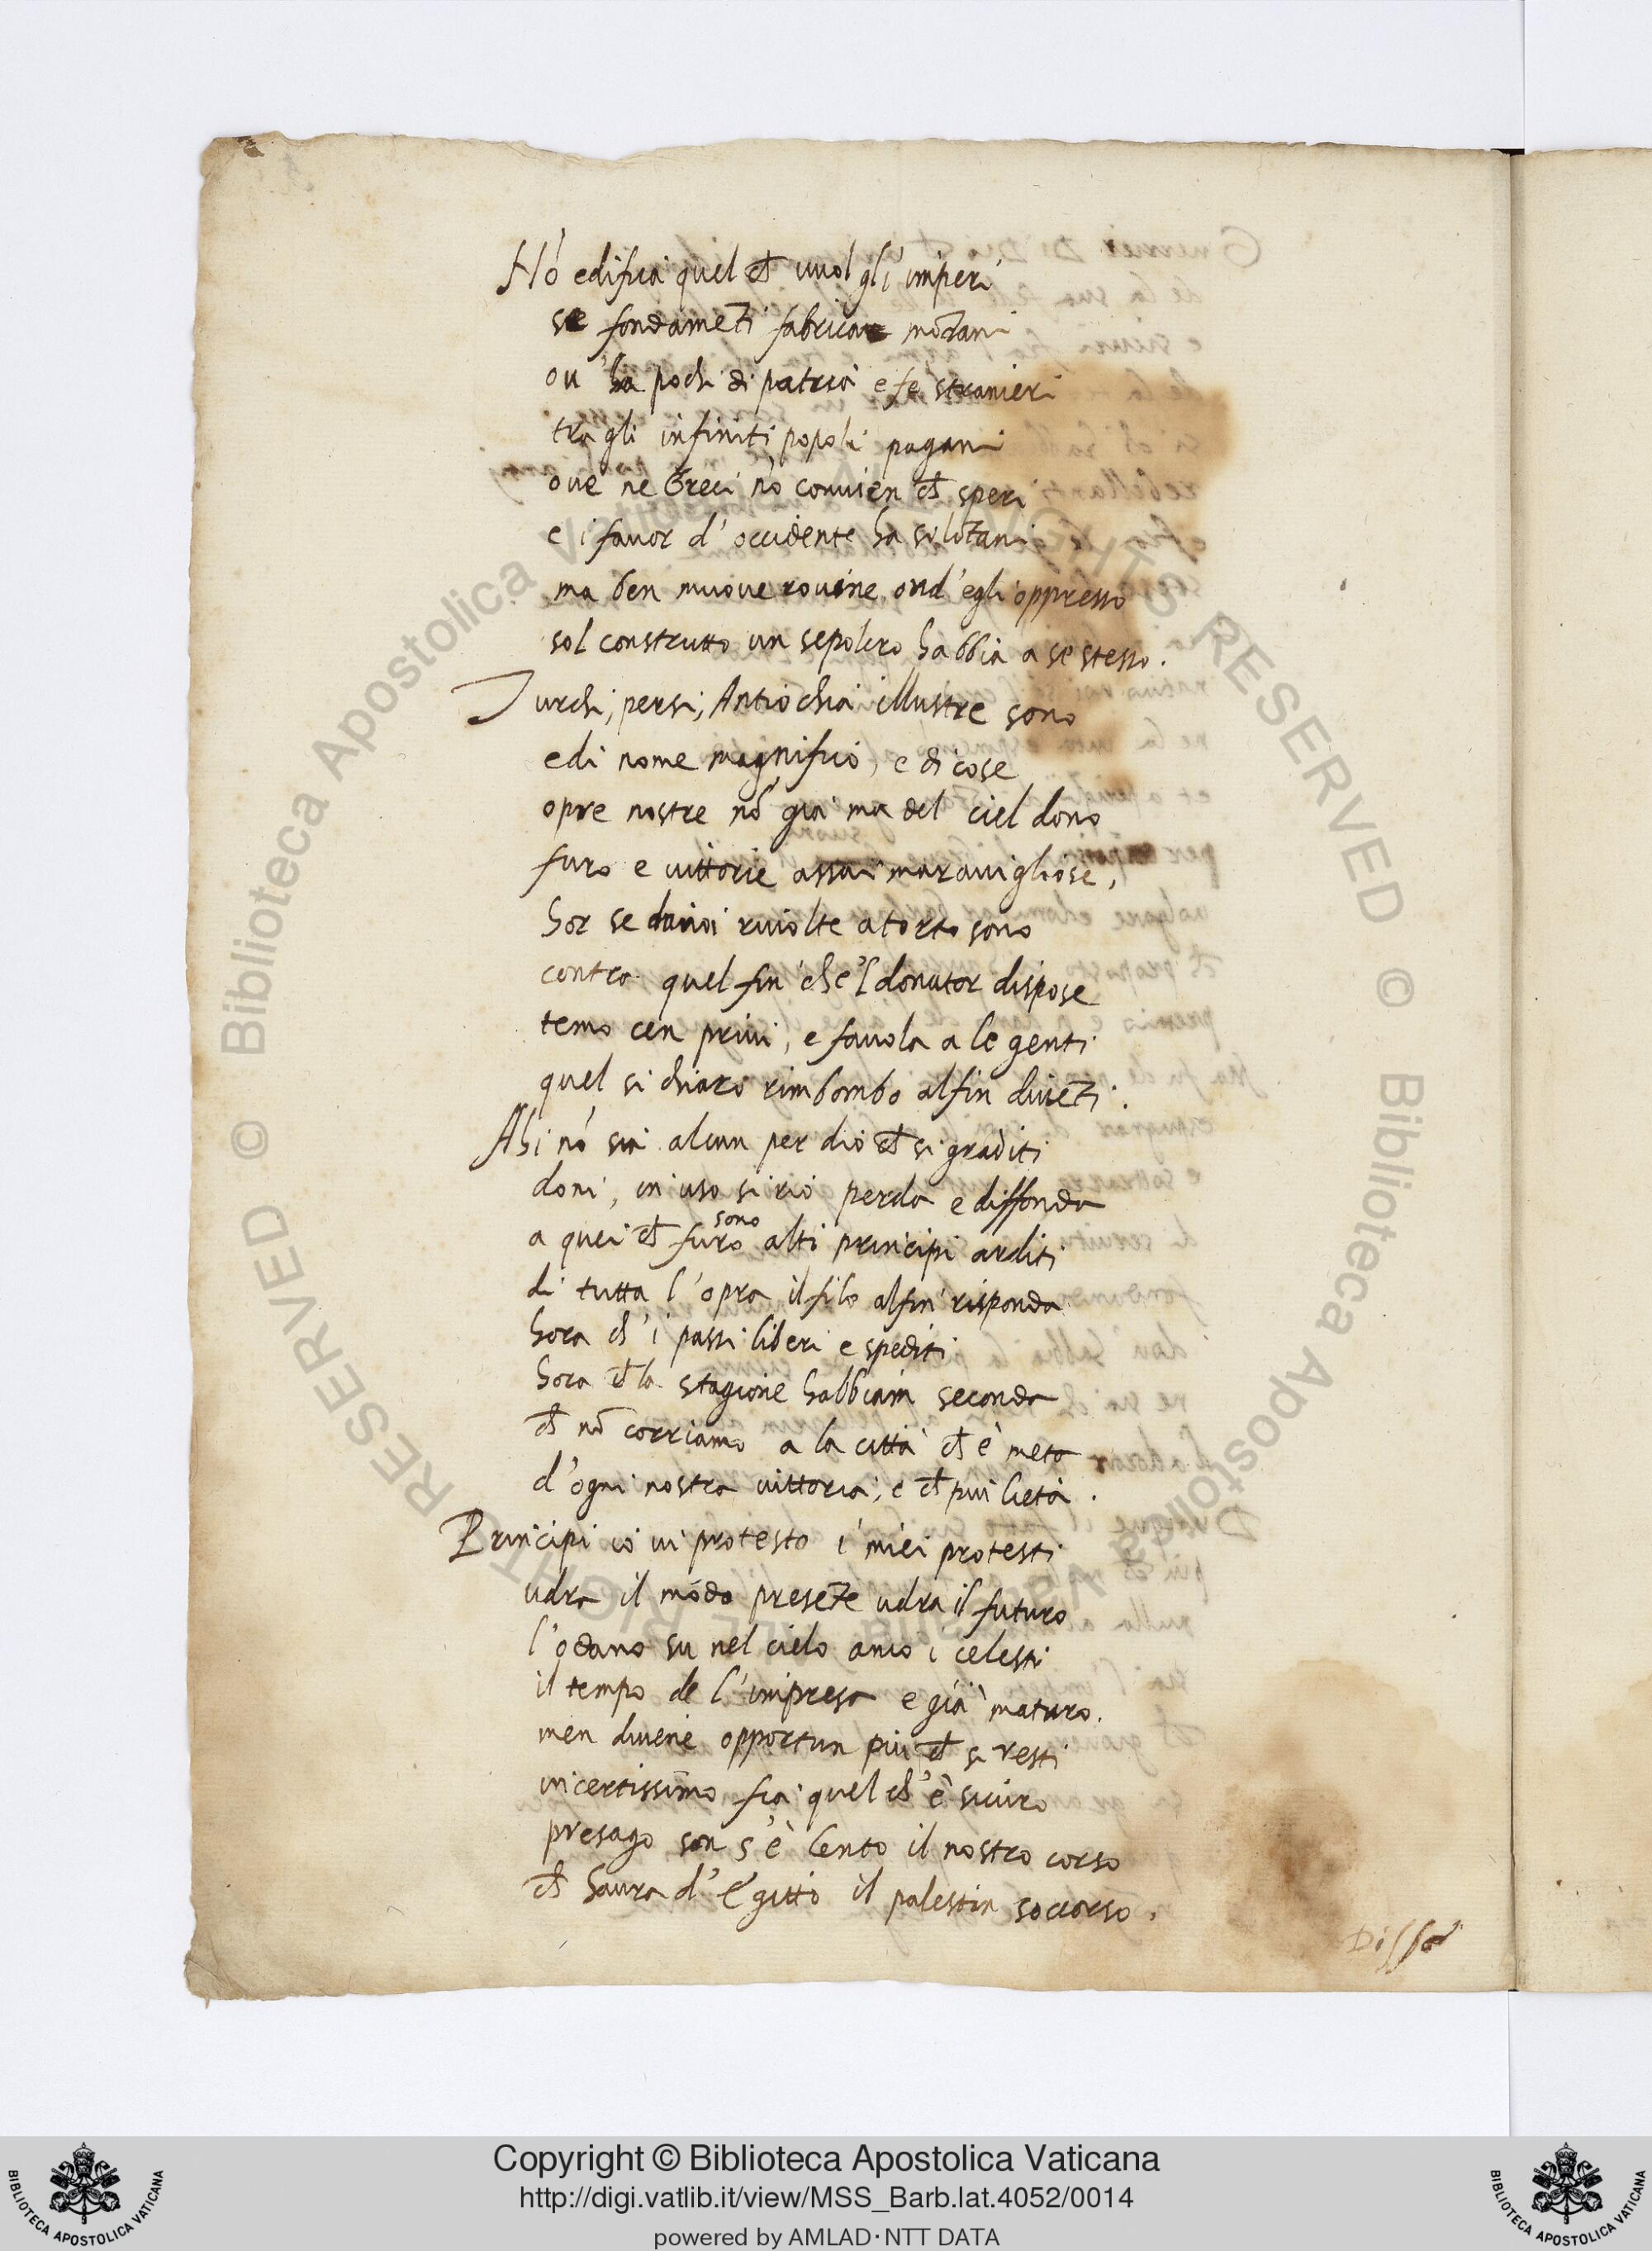 Nō edifica quel ch̄ vuol gl'imperi
su fondamēti fabricar mōdani
ou' ha pochi di patria e fe stranieri
tra gli infiniti popoli pagani
oue ne Greci nō conuien ch̄ speri
e i fauor d'occidente ha si lōtani
ma ben muoue rouine ond'egli oppresso
sol construtto un sepolcro habbia a se stesso.
Turchi, persi, Antiochia illustre sono
e di nome magnifico, e di cose
opre nostre nō già ma del ciel dono
furo e vittorie assai marauigliose,
hor se da noi riuolte a torto sono
contra quel fin che'l donator dispose
temo cen priui, e fauola a le genti
quel si chiaro rimbombo alfin diuēti.
Ahi nō sia alcun per dio ch̄ si graditi
doni, in uso si rio perda e diffonda
sono
a quei ch̄ furo alti principi arditi
di tutta l'opra il filo alfin risponda
hora ch'i passi liberi e spediti
hora ch̄ la stagione habbiam seconda
ch̄ nō corriamo a la città ch̄ è meta
d'ogni nostra vittoria, e ch̄ più lieta.
Principi io vi protesto i miei protesti
udra il mōdo presēte udra il futuro
l'odano su nel cielo anco i celesti
il tempo de l'impresa e già maturo.
men diuene opportun più ch̄ si resti
incertissimo fia quel ch'è sicuro
presago son s'è lento il nostro corso
ch̄ haura d'Egitto il palestin soccorso.
© Biblioteca Apostolica Vaticana ALL RIGHTS RESERVED © Biblioteca Apostolica Vaticana ALL RIGHTS RESERVED
Copyright © Biblioteca Apostolica Vaticana
http://digi.vatlib.it/view/MSS_Barb.lat.4052/0014
powered by AMLAD·NTT DATA
BIBLIOTECA APOSTOLICA VATICANA
BIBLIOTECA APOSTOLICA VATICANA